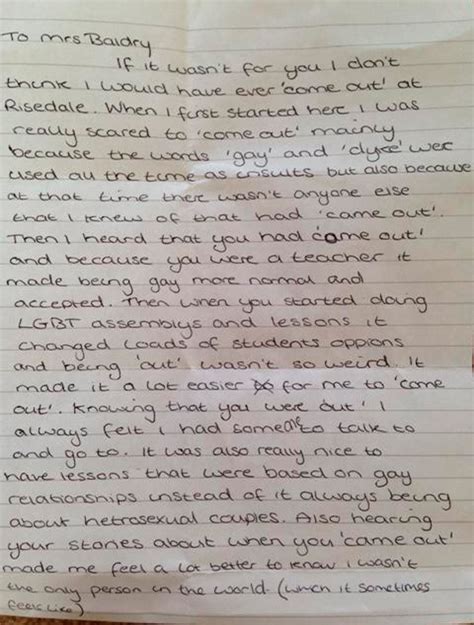 To Mrs Baldry
If it wasn't for you I don't
think I would have ever 'come out' at
Risedale. When I first started here I was
really scared to 'come out' mainly
because the words 'gay' and 'dyke' wer
used all the time as insults but also because
at that time there wasn't anyone else
that I knew of that had 'came out'.
Then I heard that you had 'come out'
and because you were a teacher it
made being gay more normal and
accepted. Then when you started doing
LGBT assemblys and lessons it
changed loads of students oppions
and being 'out' wasn't so weird. It
made it a lot easier for me to 'come
out'. Knowing that you were 'out' I
always felt I had someone to talk to
and go to. It was also really nice to
have lessons that were based on gay
relationsnips instead of it always being
about hetrosexual couples. Also hearing
your stories about when you 'came out'
made me feel a lot better to know I wasn't
the only person in the world. (which it sometimes
feels like)